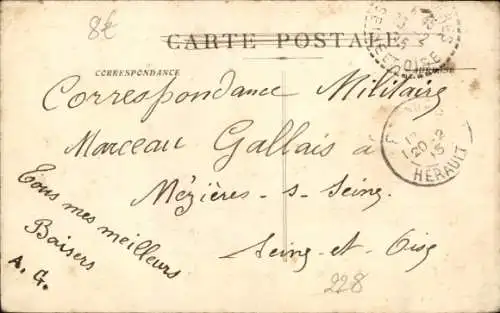 8€
CARTE POSTALE
CORRESPONDANCE
Correspondance Militaire
Marceau Gallais à
Mézières-s-Seine
Seine-et-Oise
Tous mes meilleurs
Baisers
A. G.
20-2
15
HERAULT
228